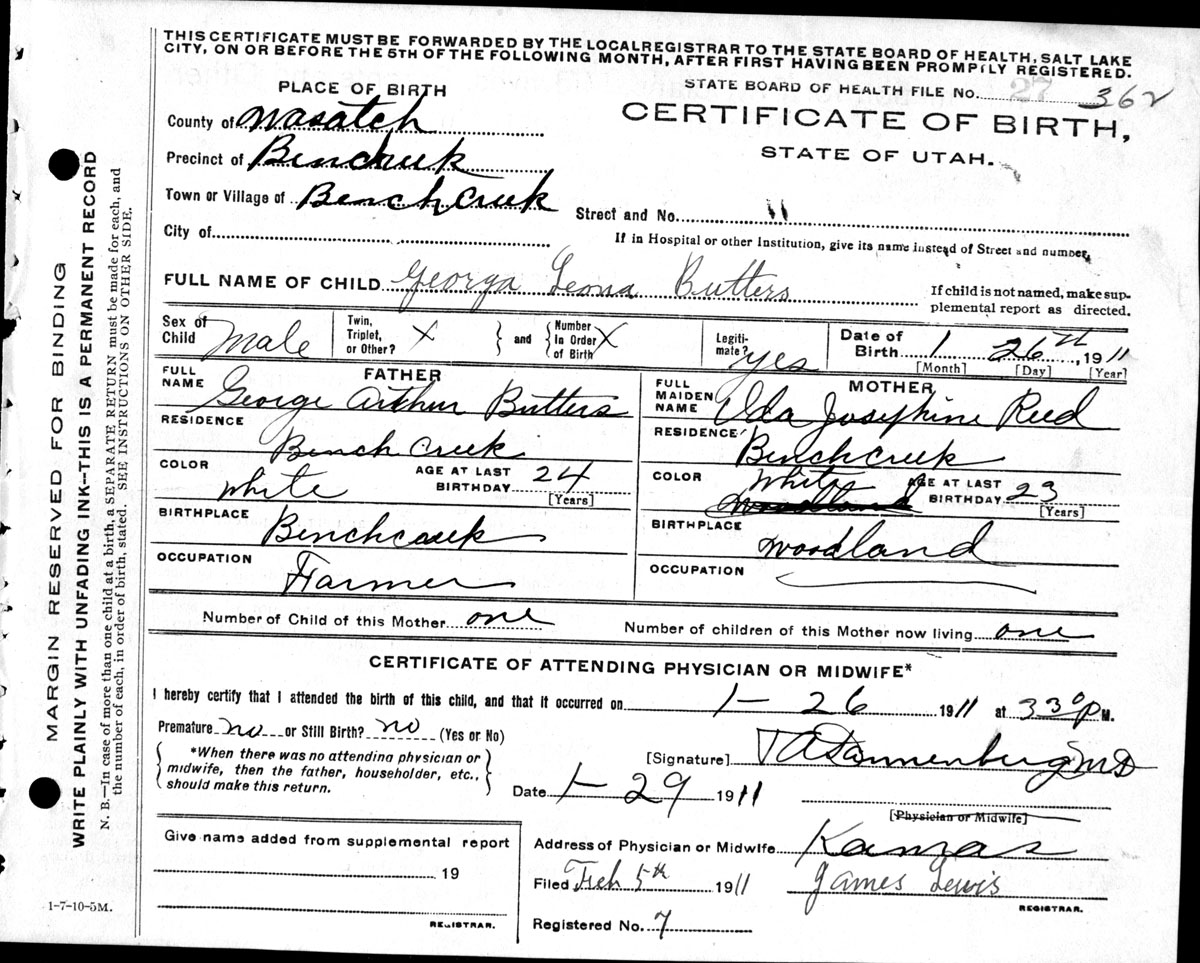 THIS CERTIFICATE MUST BE FORWARDED BY THE LOCAL REGISTRAR TO THE STATE BOARD OF HEALTH, SALT LAKE
CITY, ON OR BEFORE THE 5TH OF THE FOLLOWING MONTH, AFTER FIRST HAVING BEEN PROMPTLY REGISTERED.
STATE BOARD OF HEALTH FILE No. 27 362
PLACE OF BIRTH
CERTIFICATE OF BIRTH,
STATE OF UTAH.
County of Wasatch
Precinct of Benchcreek
Town or Village of Bench Creek
Street and No. 11
City of
If in Hospital or other Institution, give its name instead of Street and number.
FULL NAME OF CHILD Georga Leona Butters
If child is not named, make sup-
plemental report as directed.
Sex of Child Male
Twin, Triplet, or Other? X
and
Number in Order of Birth X
Legiti-mate? yes
Date of Birth 1 26th, 1911
[Month] [Day] [Year]
FATHER
FULL NAME George Arthur Butters
RESIDENCE Bench Creek
COLOR white
AGE AT LAST BIRTHDAY 24
[Years]
BIRTHPLACE Benchcreek
OCCUPATION Farmer
MOTHER
FULL MAIDEN NAME Ida Josephine Reed
RESIDENCE Benchcreek
COLOR White
Woodland
AGE AT LAST BIRTHDAY 23
[Years]
BIRTHPLACE Woodland
OCCUPATION
Number of Child of this Mother one
Number of children of this Mother now living one
CERTIFICATE OF ATTENDING PHYSICIAN OR MIDWIFE*
I hereby certify that I attended the birth of this child, and that it occurred on 1-26 1911 at 330 P M.
Premature no or Still Birth? no (Yes or No)
*When there was no attending physician or
midwife, then the father, householder, etc.,
should make this return.
[Signature] MD
Date 1-29 1911
[Physician or Midwife]
Give name added from supplemental report
19
REGISTRAR.
Address of Physician or Midwife Kamas
Filed Feb 5th 1911 James Lewis
REGISTRAR.
Registered No. 7
1-7-10-5M.
MARGIN RESERVED FOR BINDING
WRITE PLAINLY WITH UNFADING INK—THIS IS A PERMANENT RECORD
N. B.—In case of more than one child at a birth, a SEPARATE RETURN must be made for each, and
the number of each, in order of birth, stated. SEE INSTRUCTIONS ON OTHER SIDE.